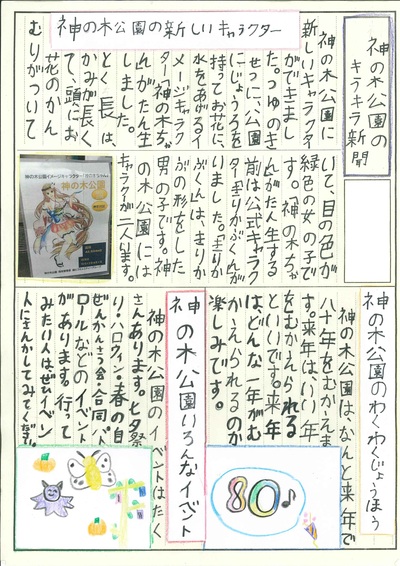 神の木公園の
キラキラ新聞
神の木公園の新しいキャラクター
神の木公園に
新しいキャラクター
ができまし
た。つゆのき
せつに、公園
にじょうろを
持ってお花に、
水をあげるイ
メージキャラク
ター神の木ちゃ
んがたん生
しました。
とく長は、
かみが長く
て、頭にお
花のかん
むりがついて
いて、目の色が
緑色の女の子で
す。神の木ちゃ
んがたん生する
前は公式キャラク
ターきりかぶくんが
いました。きりか
ぶくんは、きりか
ぶの形をした
男の子です。神
の木公園には
キャラクターが二人います。
神の木公園
神の木公園のわくわくじょうほう
神の木公園は、なんと来年で
八十年をむかえま
す。来年は、いい年
をむかえられる
といいです。来年
は、どんな一年がむ
かえられるのか
楽しみです。
80♪
神の木公園いろんなイベント
神の木公園のイベントはたく
さんあります。七夕祭
り・ハロウィン・春の自
ぜんかんさつ会・合同パト
ロールなどのイベント
があります。行って
みたい人はぜひイベン
トにさんかしてみてください